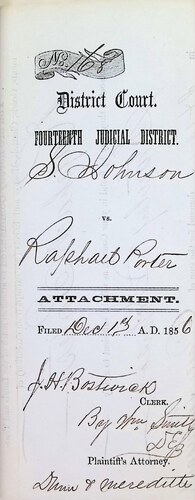 No. 168
District Court.
FOURTEENTH JUDICIAL DISTRICT.
S Johnson
vs.
Raphael Porter
ATTACHMENT.
FILED Dec 13 A. D. 1856
J. H. Bostwick
CLERK.
By Wm Smith
Plaintiff's Attorney.
Dunn & Meredith